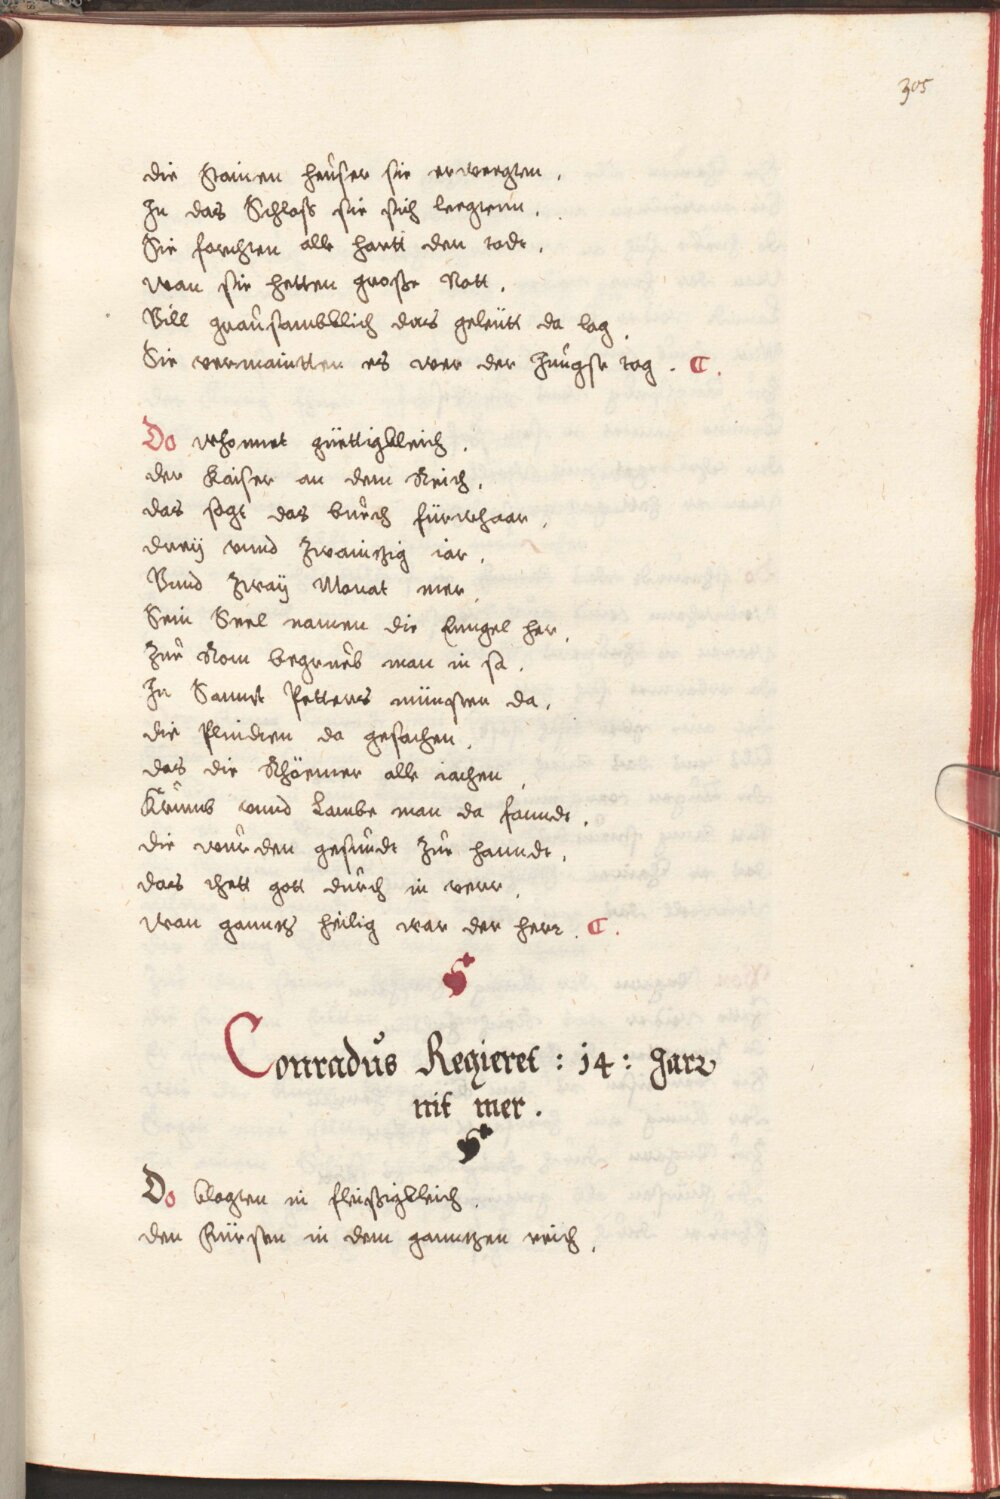 305
die Stainen heuser sie erwegten.
In das Schloss sie sich legtenn.
Sie forchten alle hartt den tode.
wan sie hetten große Nott.
Vill grausambklich das geleütt da lag.
Sie vermaintten es wer der Jungste tag. C.
Do whonnet güettigkleich.
der Kaiser an dem Reich.
das sagt das buech fürwhaar.
dreÿ vnnd zwaintzig iar.
Vnnd zwaÿ Monat mer.
Sein Seel namen die Enngel her.
Zue Rom begrueb man in sa.
In Sannct Petters münster da.
die Plinden da gesachen.
das die Rhöemer alle iachen.
Krump vnnd Lambe man da fanndt.
die wurden gesundt zue hanndt.
das thett gott durch in verr.
wan ganntz heilig war der herr. C.
Conradus Regieret : 14 : Jarr
nit mer.
Do klagten in fleißigkleich.
den Fürsten in dem ganntzen reich.